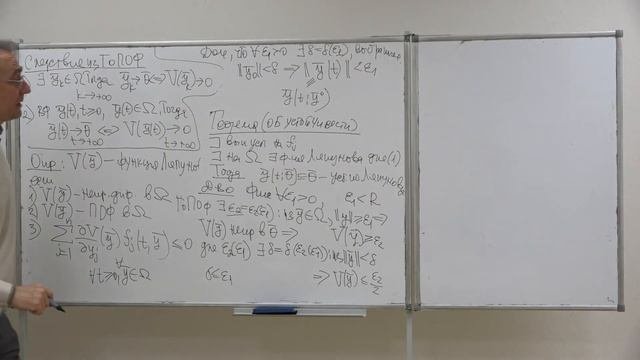 Следствие из ТоПОФ
∃ ȳₖ∈Ω Тогда ȳₖ→θ̄ ⟺ V(ȳₖ)→0
k→+∞
2) ȳ(t), t≥0, ȳ(t)∈Ω, Тогда
ȳ(t)→θ̄ ⟺ V(ȳ(t))→0
t→+∞ t→+∞
Опр: V(ȳ) – функция Ляпунова
если
1) V(ȳ) – непр. диф. в Ω
2) V(ȳ) – ПОФ в Ω
3) ∑ ∂V(ȳ)/∂yⱼ fⱼ(t,ȳ) ≤ 0
∀t≥0, ∀ȳ∈Ω
∀ε₁>0 ∃δ=δ(ε₁),
‖ȳ₀‖<δ ⟹ ‖ȳ(t)‖<ε₁
ȳ(t; ȳ⁰)
Теорема (об устойчивости)
∃ вып усл на fⱼ
∃ на Ω ∃ ф-ия Ляпунова для (1)
Тогда ȳ(t;θ̄)≡θ̄ – уст по Ляпунову
Д-во Фикс ∀ε₁>0, ε₁<R
ТоПОФ ∃ε₂=ε₂(ε₁): ∀ȳ∈Ω, ‖ȳ‖≥ε₁ ⟹
V(ȳ)≥ε₂
V(ȳ) непр в θ̄ ⟹
для ε₂(ε₁) ∃δ=δ(ε₂(ε₁)): ‖ȳ‖<δ
δ≤ε₁ ⟹ V(ȳ)≤ε₂/2